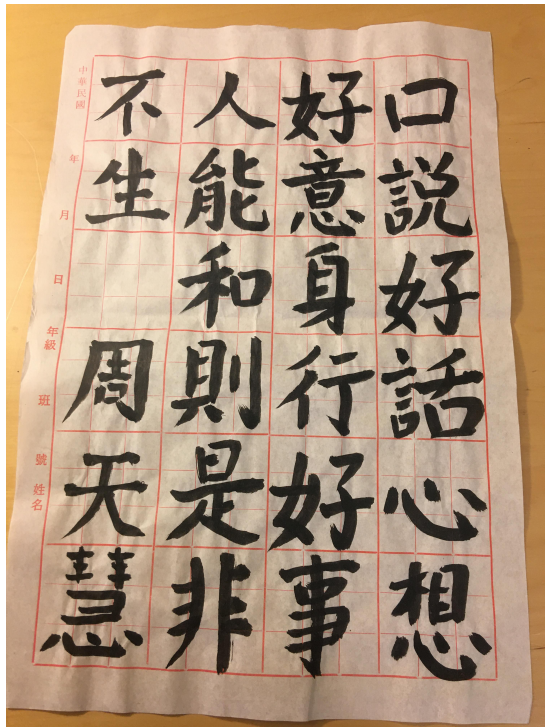 口説好話心想
好意身行好事
人能和則是非
不生 周天慧
中華民國 年 月 日 年級 班 號 姓名